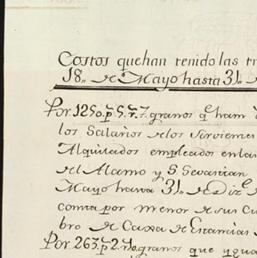 Costos quehan tenido las tr
18,, de Mayo hasta 31,, de
Por 1250 p.s 5 r.s 7 granos q.e ham
los Salarios de los Sirvientes
Alquilados empleados enlas
del Alamo y S. Sevastian
Mayo hasta 31,, de Diz.e
comta por menor de sus Cu
bro de Caxa de Estancias
Por 263 p.s 2 r.s granos que ygua